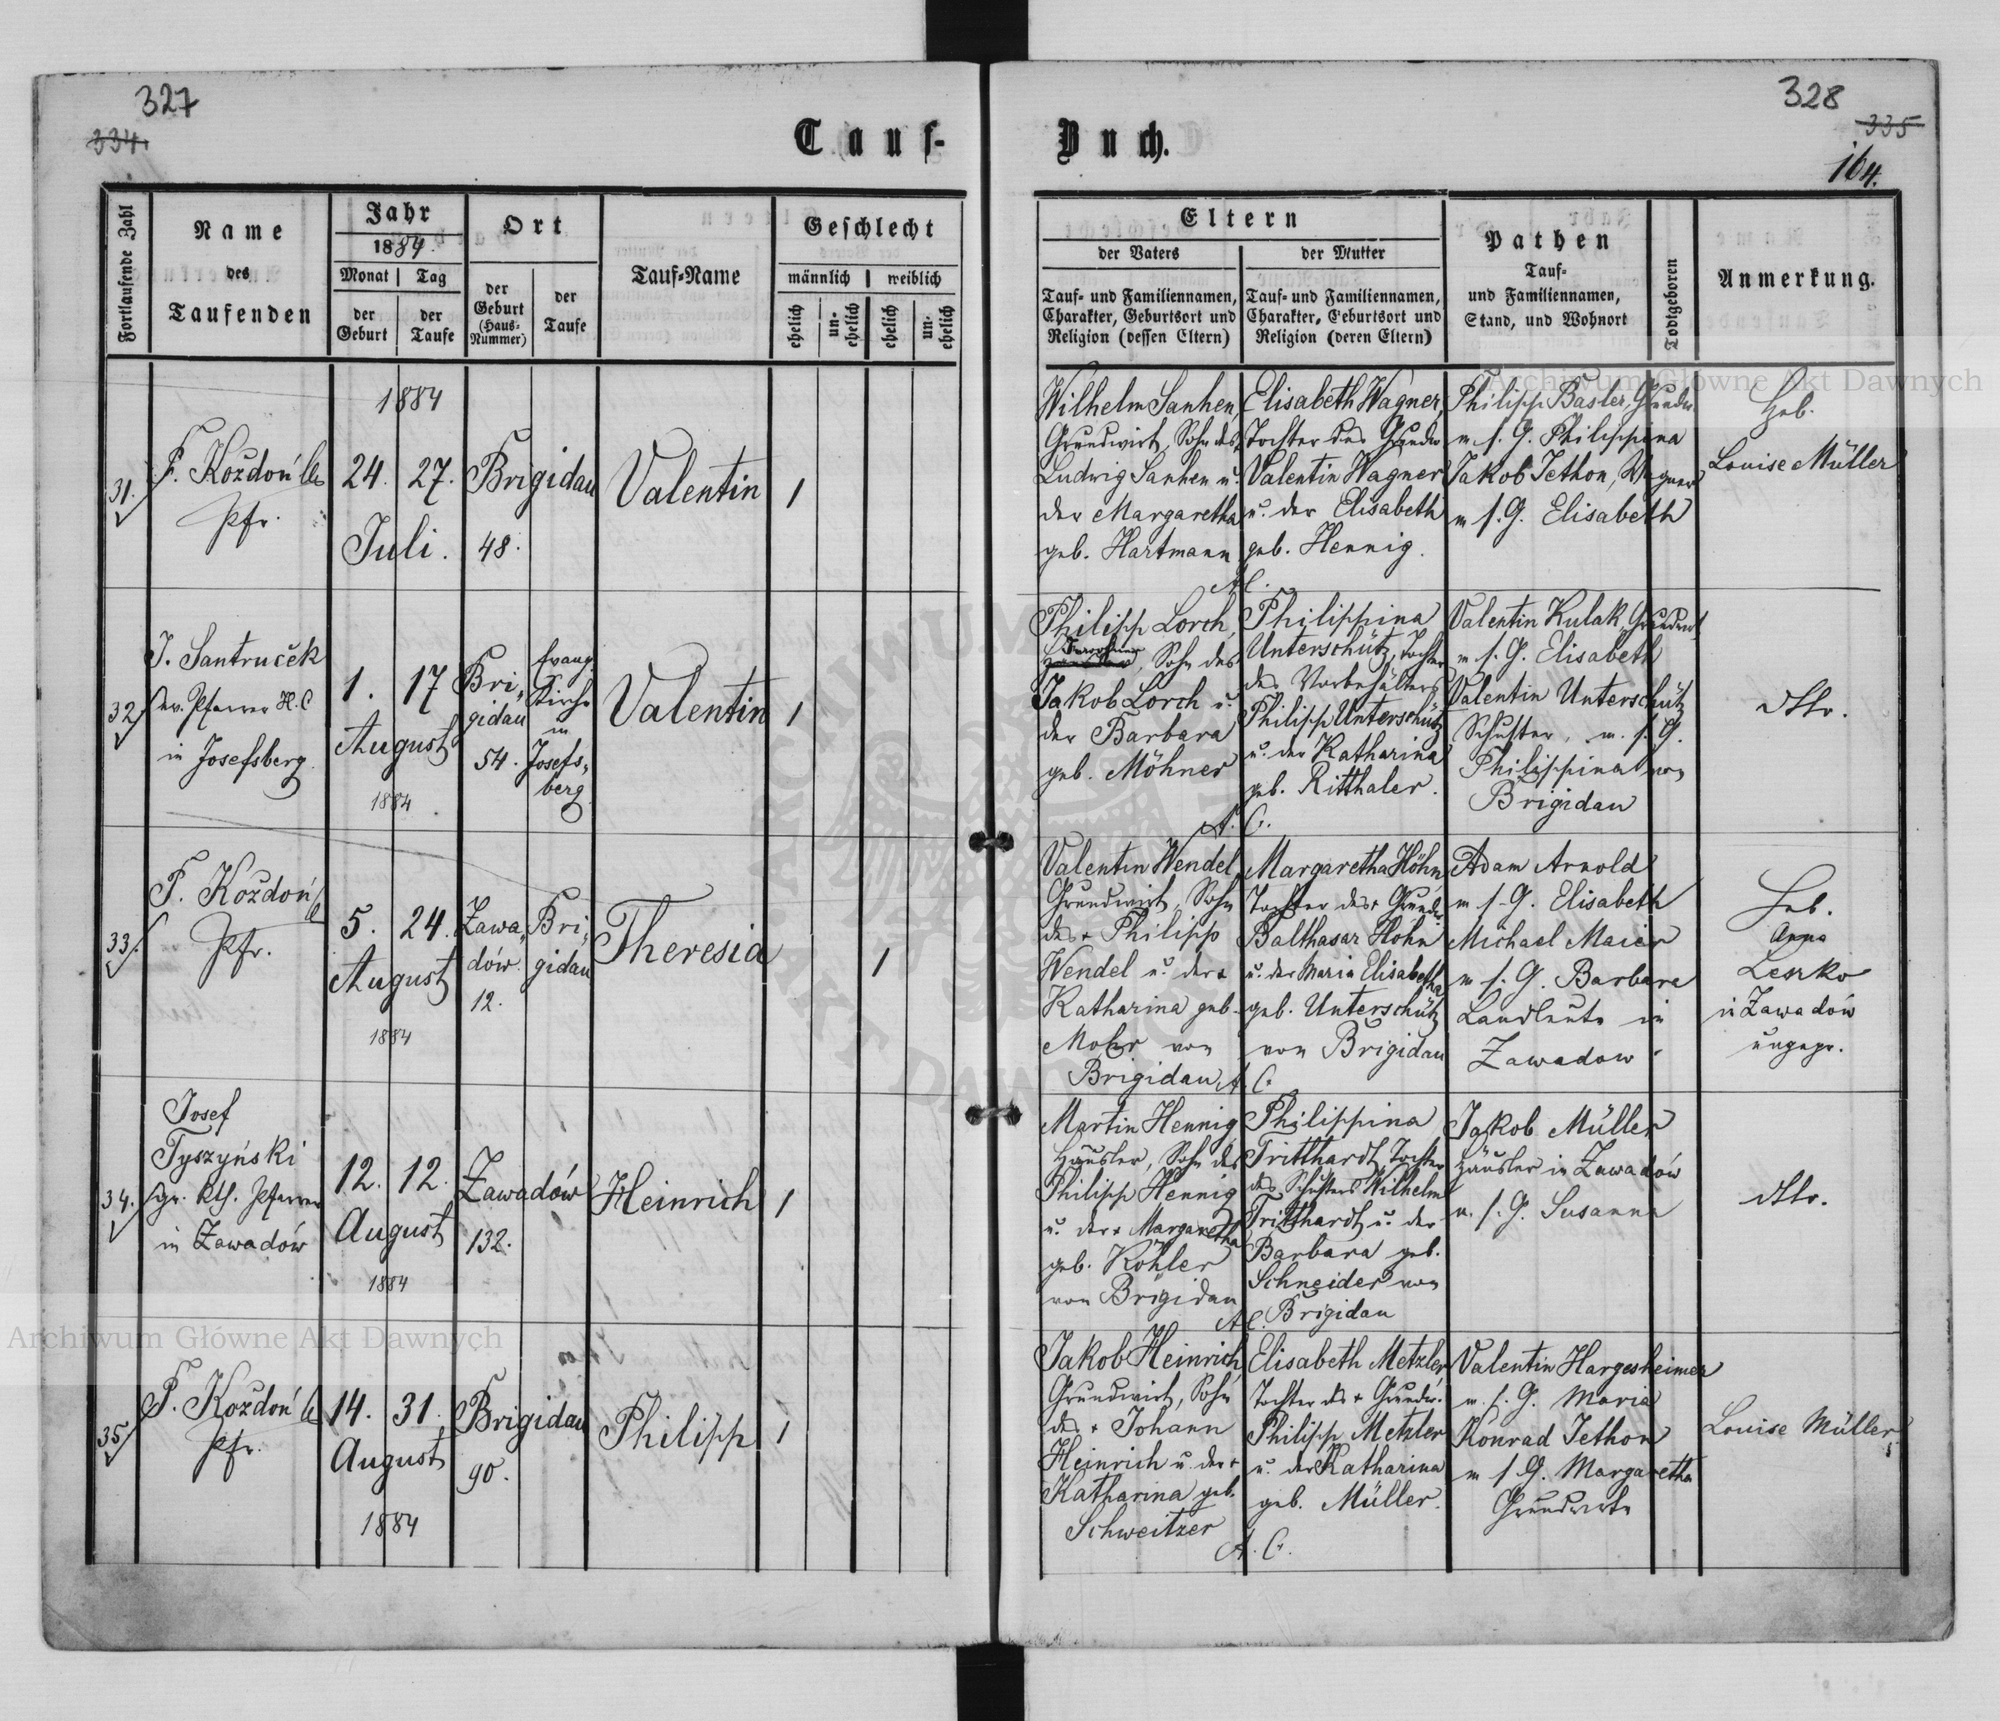 327
334.
Tauf-
Fortlaufende Zahl
Name
des
Taufenden
Jahr
1884.
Monat
Tag
der
Geburt
der
Taufe
Ort
der
Geburt
(Haus-
Nummer)
der
Taufe
Tauf-Name
Geschlecht
männlich
weiblich
ehelich
un-
ehelich
ehelich
un-
ehelich
31.
F. Kozdoń
Pfr.
1884
24.
27.
Juli.
Brigidau
48.
Valentin
1
32
J. Santruček
ev. Pfarrer H. C
in Josefsberg.
1.
17
August
1884
Bri-
gidau
54.
Evang.
Kirche
in
Josefs-
berg
Valentin
1
33.
F. Kozdoń
Pfr.
5.
24.
August
1884
Zawa-
dów.
12.
Bri-
gidau
Theresia
1
34.
Josef
Tyszyński
gr. kth. Pfarrer
in Zawadów
12.
12.
August
1884
Zawadów
132.
Heinrich
1
35.
F. Kozdoń
Pfr.
14.
31.
August
1884
Brigidau
90.
Philipp
1
328
335
164.
Buch.
Eltern
der Vaters
der Mutter
Tauf- und Familiennamen,
Charakter, Geburtsort und
Religion (dessen Eltern)
Tauf- und Familiennamen,
Charakter, Geburtsort und
Religion (deren Eltern)
Pathen
Tauf-
und Familiennamen,
Stand, und Wohnort
Todtgeboren
Anmerkung.
Wilhelm Sanhen,
Grundwirt, Sohn des
Ludwig Sanhen u.
der Margaretha
geb. Hartmann
Elisabeth Wagner,
Tochter des Grundw
Valentin Wagner
u. der Elisabeth
geb. Hennig.
A C.
Philipp Basler, Grundw.
m s. G. Philippina
Jakob Jethon, Wagner
m s. G. Elisabeth
Heb.
Louise Müller
Philipp Lorch,
Sohn des
Jakob Lorch u.
der Barbara
geb. Möhner
Philippina
Unterschütz, Tochter
des Vorbehälters
Philipp Unterschütz
u. der Katharina
geb. Ritthaler.
A. C.
Valentin Kulak, Grundwirt
m s. G. Elisabeth
Valentin Unterschütz
Schuster, m. s. G.
Philippina von
Brigidau
dtto.
Valentin Wendel,
Grundwirt, Sohn
des + Philipp
Wendel u. der +
Katharina geb.
Mohr von
Brigidau
Margaretha Höhn
Tochter des + Grundw
Balthasar Höhn
u. der Maria Elisabetha
geb. Unterschütz
von Brigidau
A. C.
Adam Arnold
m s. G. Elisabeth
Michael Maier
m s. G. Barbara
Landleute in
Zawadow.
Heb.
Anna
Leszko
in Zawadów
ungepr.
Martin Hennig,
Häusler, Sohn des
Philipp Hennig
u. der + Margaretha
geb. Köhler
von Brigidau
Philippina
Tritthardt, Tochter
des Schusters Wilhelm
Tritthardt u. der
Barbara geb.
Schneider von
Brigidau
A C.
Jakob Müller
Häusler in Zawadów
m. s. G. Susanna
dtto.
Jakob Heinrich,
Grundwirt, Sohn
des + Johann
Heinrich u. der +
Katharina geb.
Schweitzer
Elisabeth Metzler
Tochter des + Grundw.
Philipp Metzler
u. der Katharina
geb. Müller.
A. C.
Valentin Hargesheimer
m. s. G. Maria
Konrad Jethon
m s. G. Margaretha
Grundwirte
Louise Müller
Archiwum Główne Akt Dawnych
Archiwum Główne Akt Dawnych